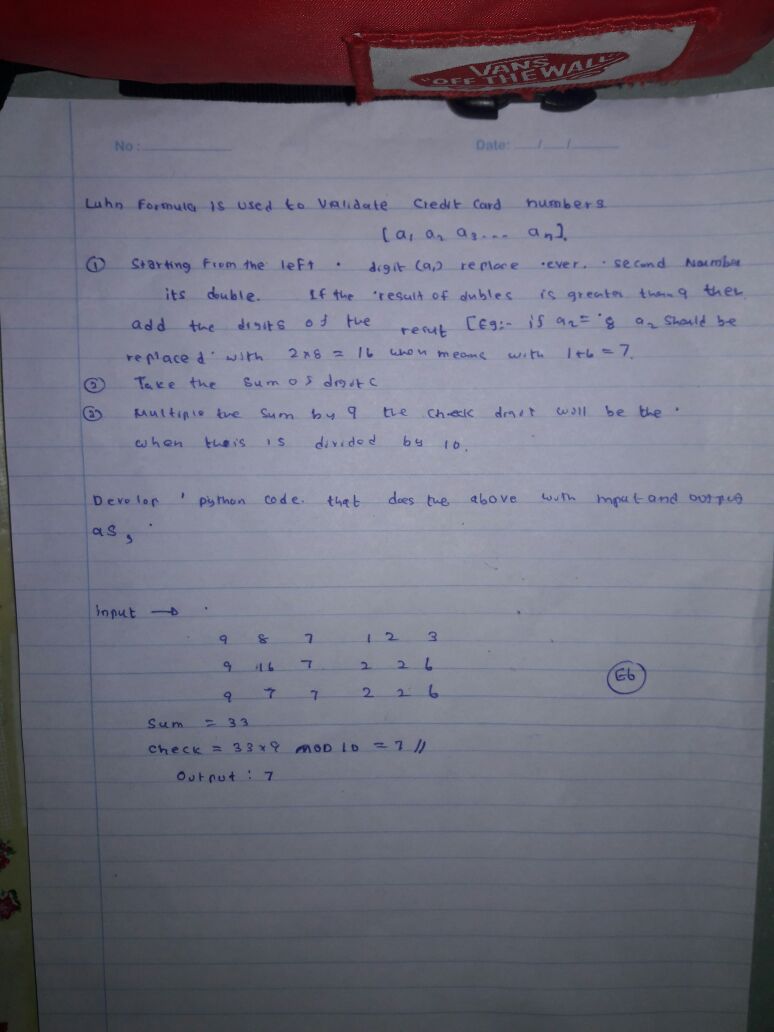 VANS
"OFF THE WALL"
No: Date: / /
Luhn Formula is used to Validate Credit Card numbers
[a1 a2 a3... an].
① Starting From the left . digit (a1) replace ever. second Number
its double. If the result of dubles is greater than 9 then
add the digits of the result [Eg:- if a2 = 8 a2 should be
replaced with 2x8 = 16 when means with 1+6 = 7.
② Take the sum of digits
③ Multiple the sum by 9 the check digit will be the
when this is divided by 10.
Develop python code. that does the above with input and output
as,
Input →
9 8 7 1 2 3
9 16 7 2 2 6
9 7 7 2 2 6
Sum = 33
Check = 33 x 9 MOD 10 = 7 //
Output : 7
E6